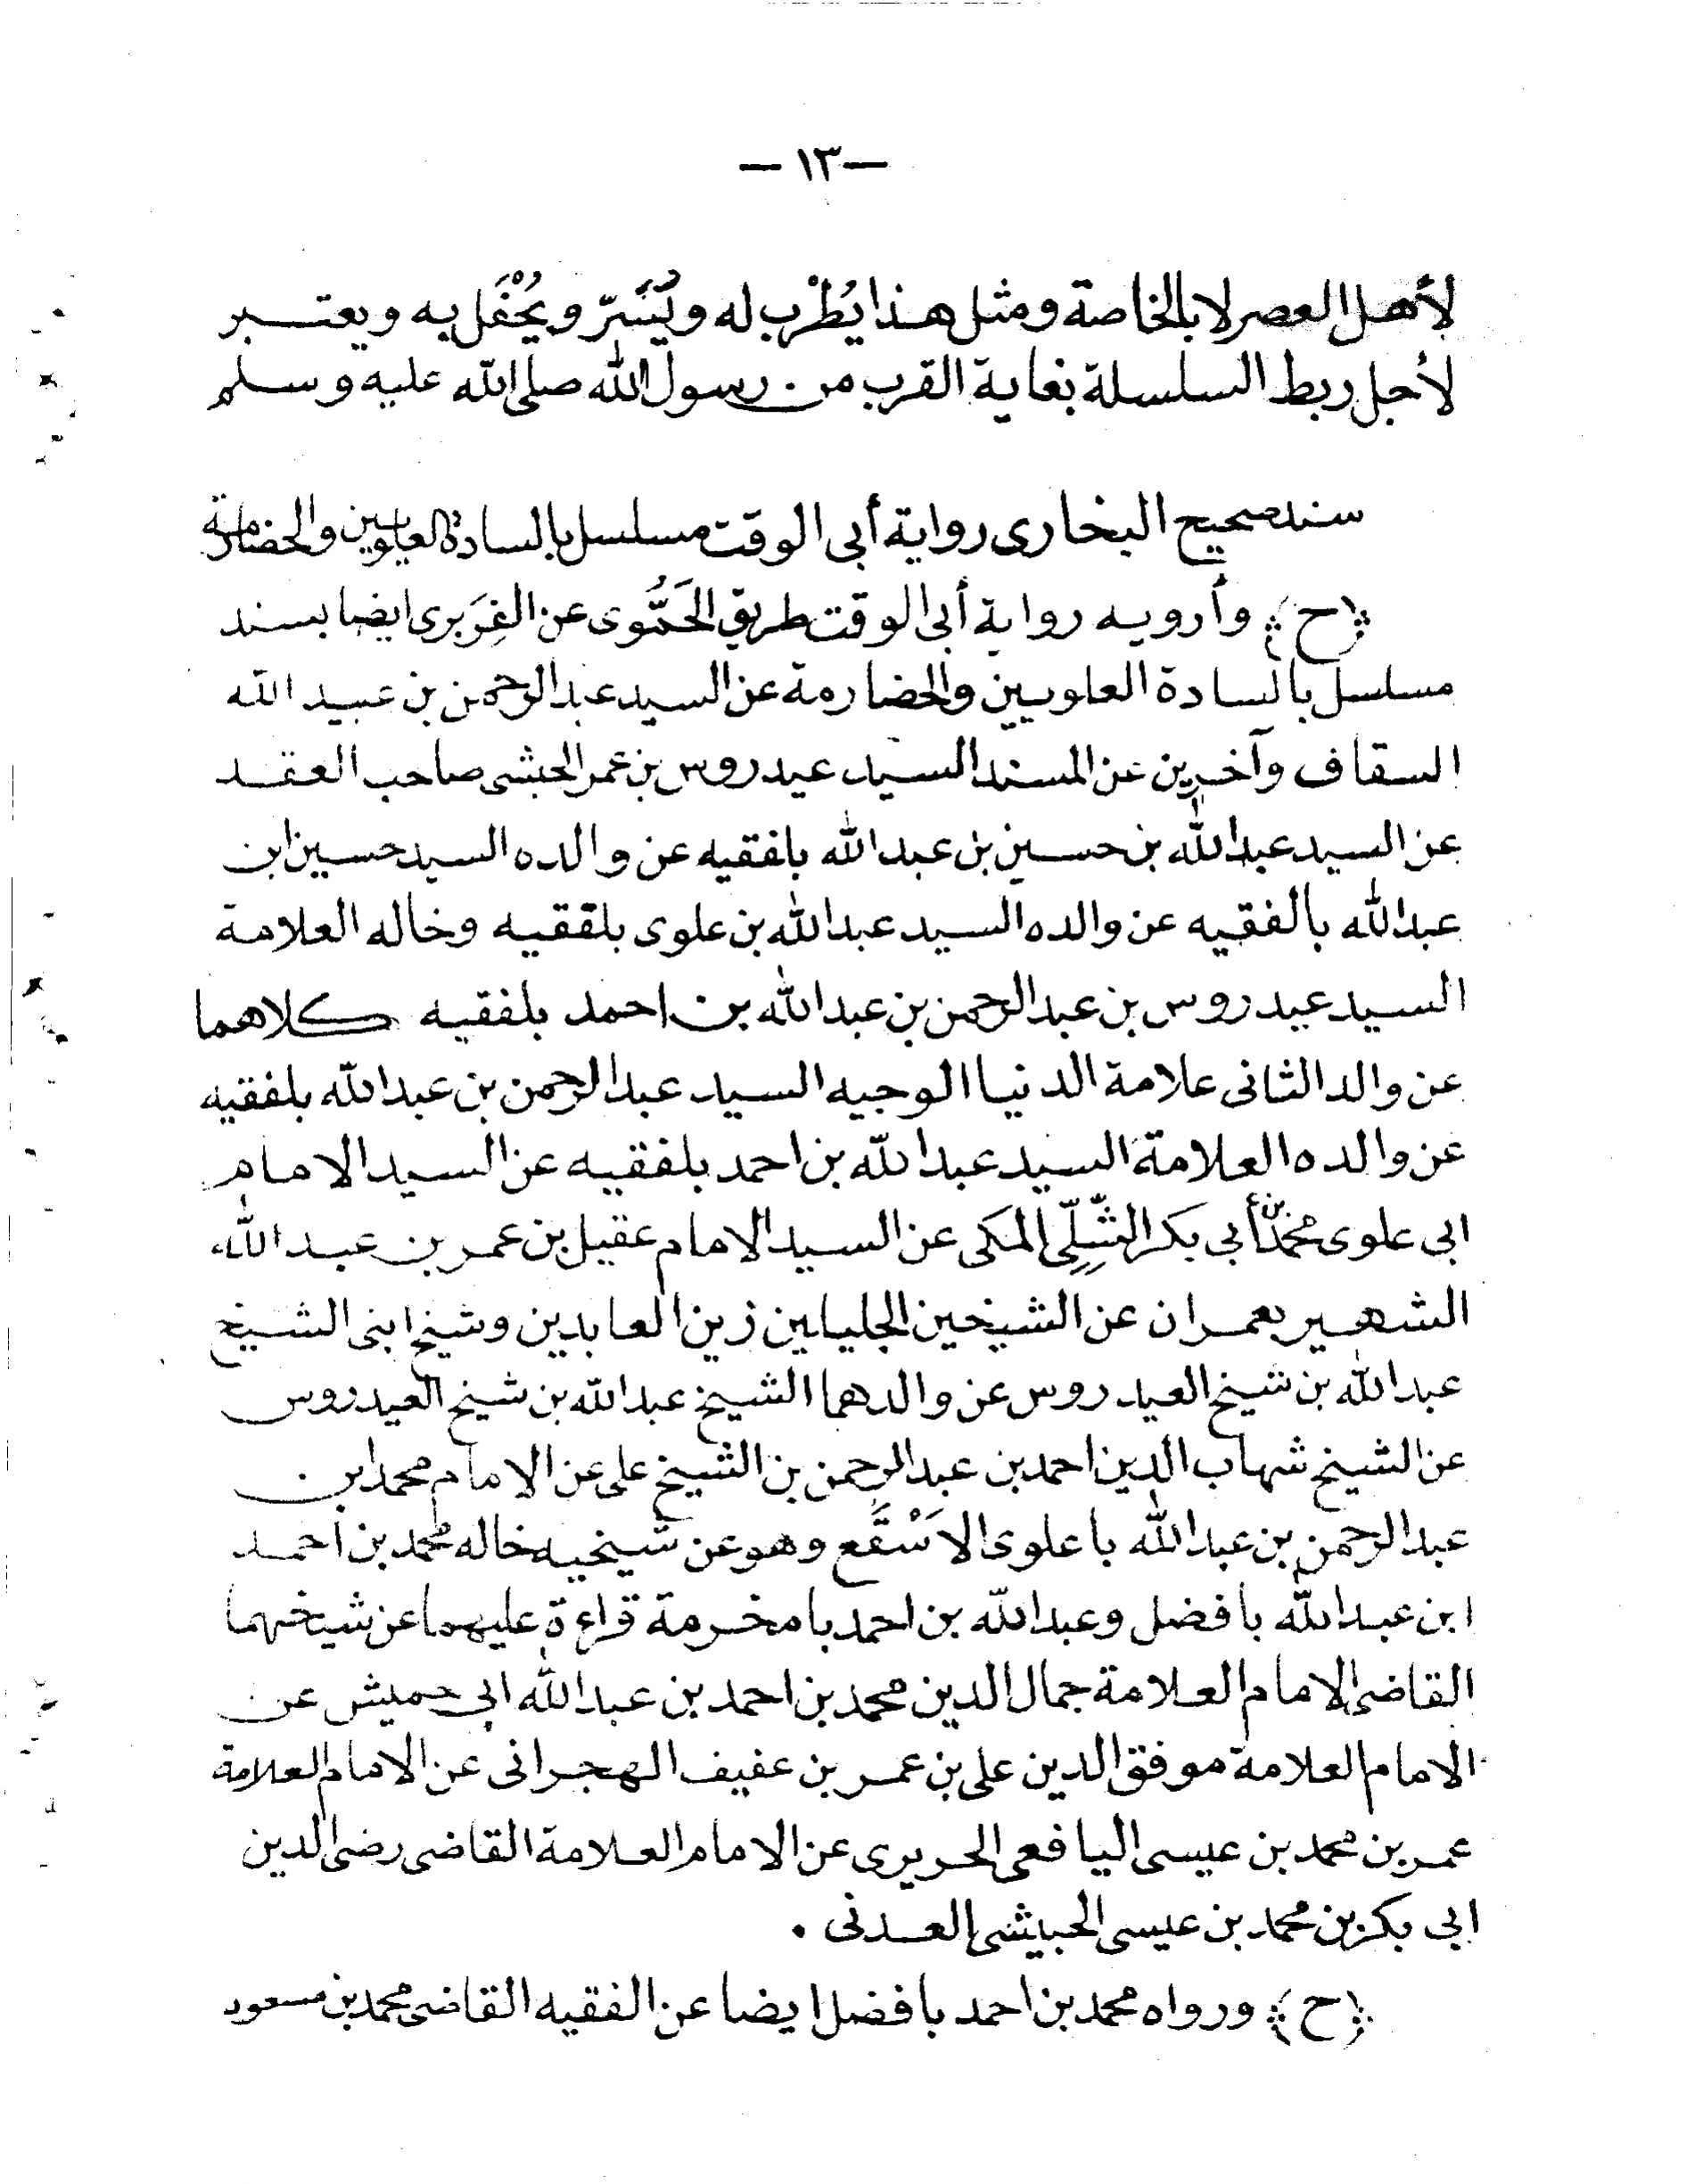 — ١٣ —
لأهل العصر لا بالخاصة ومثل هذا يُطْرب له ويُسَرّ ويُحْفَل به ويعتبر
لأجل ربط السلسلة بغاية القرب من رسول الله صلى الله عليه وسلم
سند صحيح البخارى رواية أبى الوقت مسلسل بالسادة العلويين والحضارمة
﴿ح﴾ وأرويه رواية أبى الوقت طريق الحَمُّوى عن الفِرَبرى ايضا بسند
مسلسل بالسادة العلويين والحضارمة عن السيد عبد الرحمن بن عبيد الله
السقاف وآخرين عن المسند السيد عيدروس بن عمر الحبشى صاحب العقد
عن السيد عبد الله بن حسين بن عبد الله بافقيه عن والده السيد حسين ابن
عبد الله بالفقيه عن والده السيد عبد الله بن علوى بلفقيه وخاله العلامة
السيد عيدروس بن عبد الرحمن بن عبد الله بن احمد بلفقيه كلاهما
عن والد الثانى علامة الدنيا الوجيه السيد عبد الرحمن بن عبد الله بلفقيه
عن والده العلامة السيد عبد الله بن احمد بلفقيه عن السيد الامام
ابى علوى محمد بن أبي بكر الشِّلِّى المكى عن السيد الامام عقيل بن عمر بن عبد الله
الشهير بعمران عن الشيخين الجليلين زين العابدين وشيخ ابنى الشيخ
عبد الله بن شيخ العيدروس عن والدهما الشيخ عبد الله بن شيخ العيدروس
عن الشيخ شهاب الدين احمد بن عبد الرحمن بن الشيخ على عن الامام محمد ابن
عبد الرحمن بن عبد الله باعلوى الاَسْقَع وهو عن شيخيه خاله محمد بن احمد
ابن عبد الله بافضل وعبد الله بن احمد بامخرمة قراءة عليهما عن شيخهما
القاضى الامام العلامة جمال الدين محمد بن احمد بن عبد الله ابى حميش عن
الامام العلامة موفق الدين على بن عمر بن عفيف الهجرانى عن الامام العلامة
عمر بن محمد بن عيسى اليافعى الحريرى عن الامام العلامة القاضى رضى الدين
ابى بكر بن محمد بن عيسى الحبيشى العدنى .
﴿ح﴾ ورواه محمد بن احمد بافضل ايضا عن الفقيه القاضى محمد بن مسعود